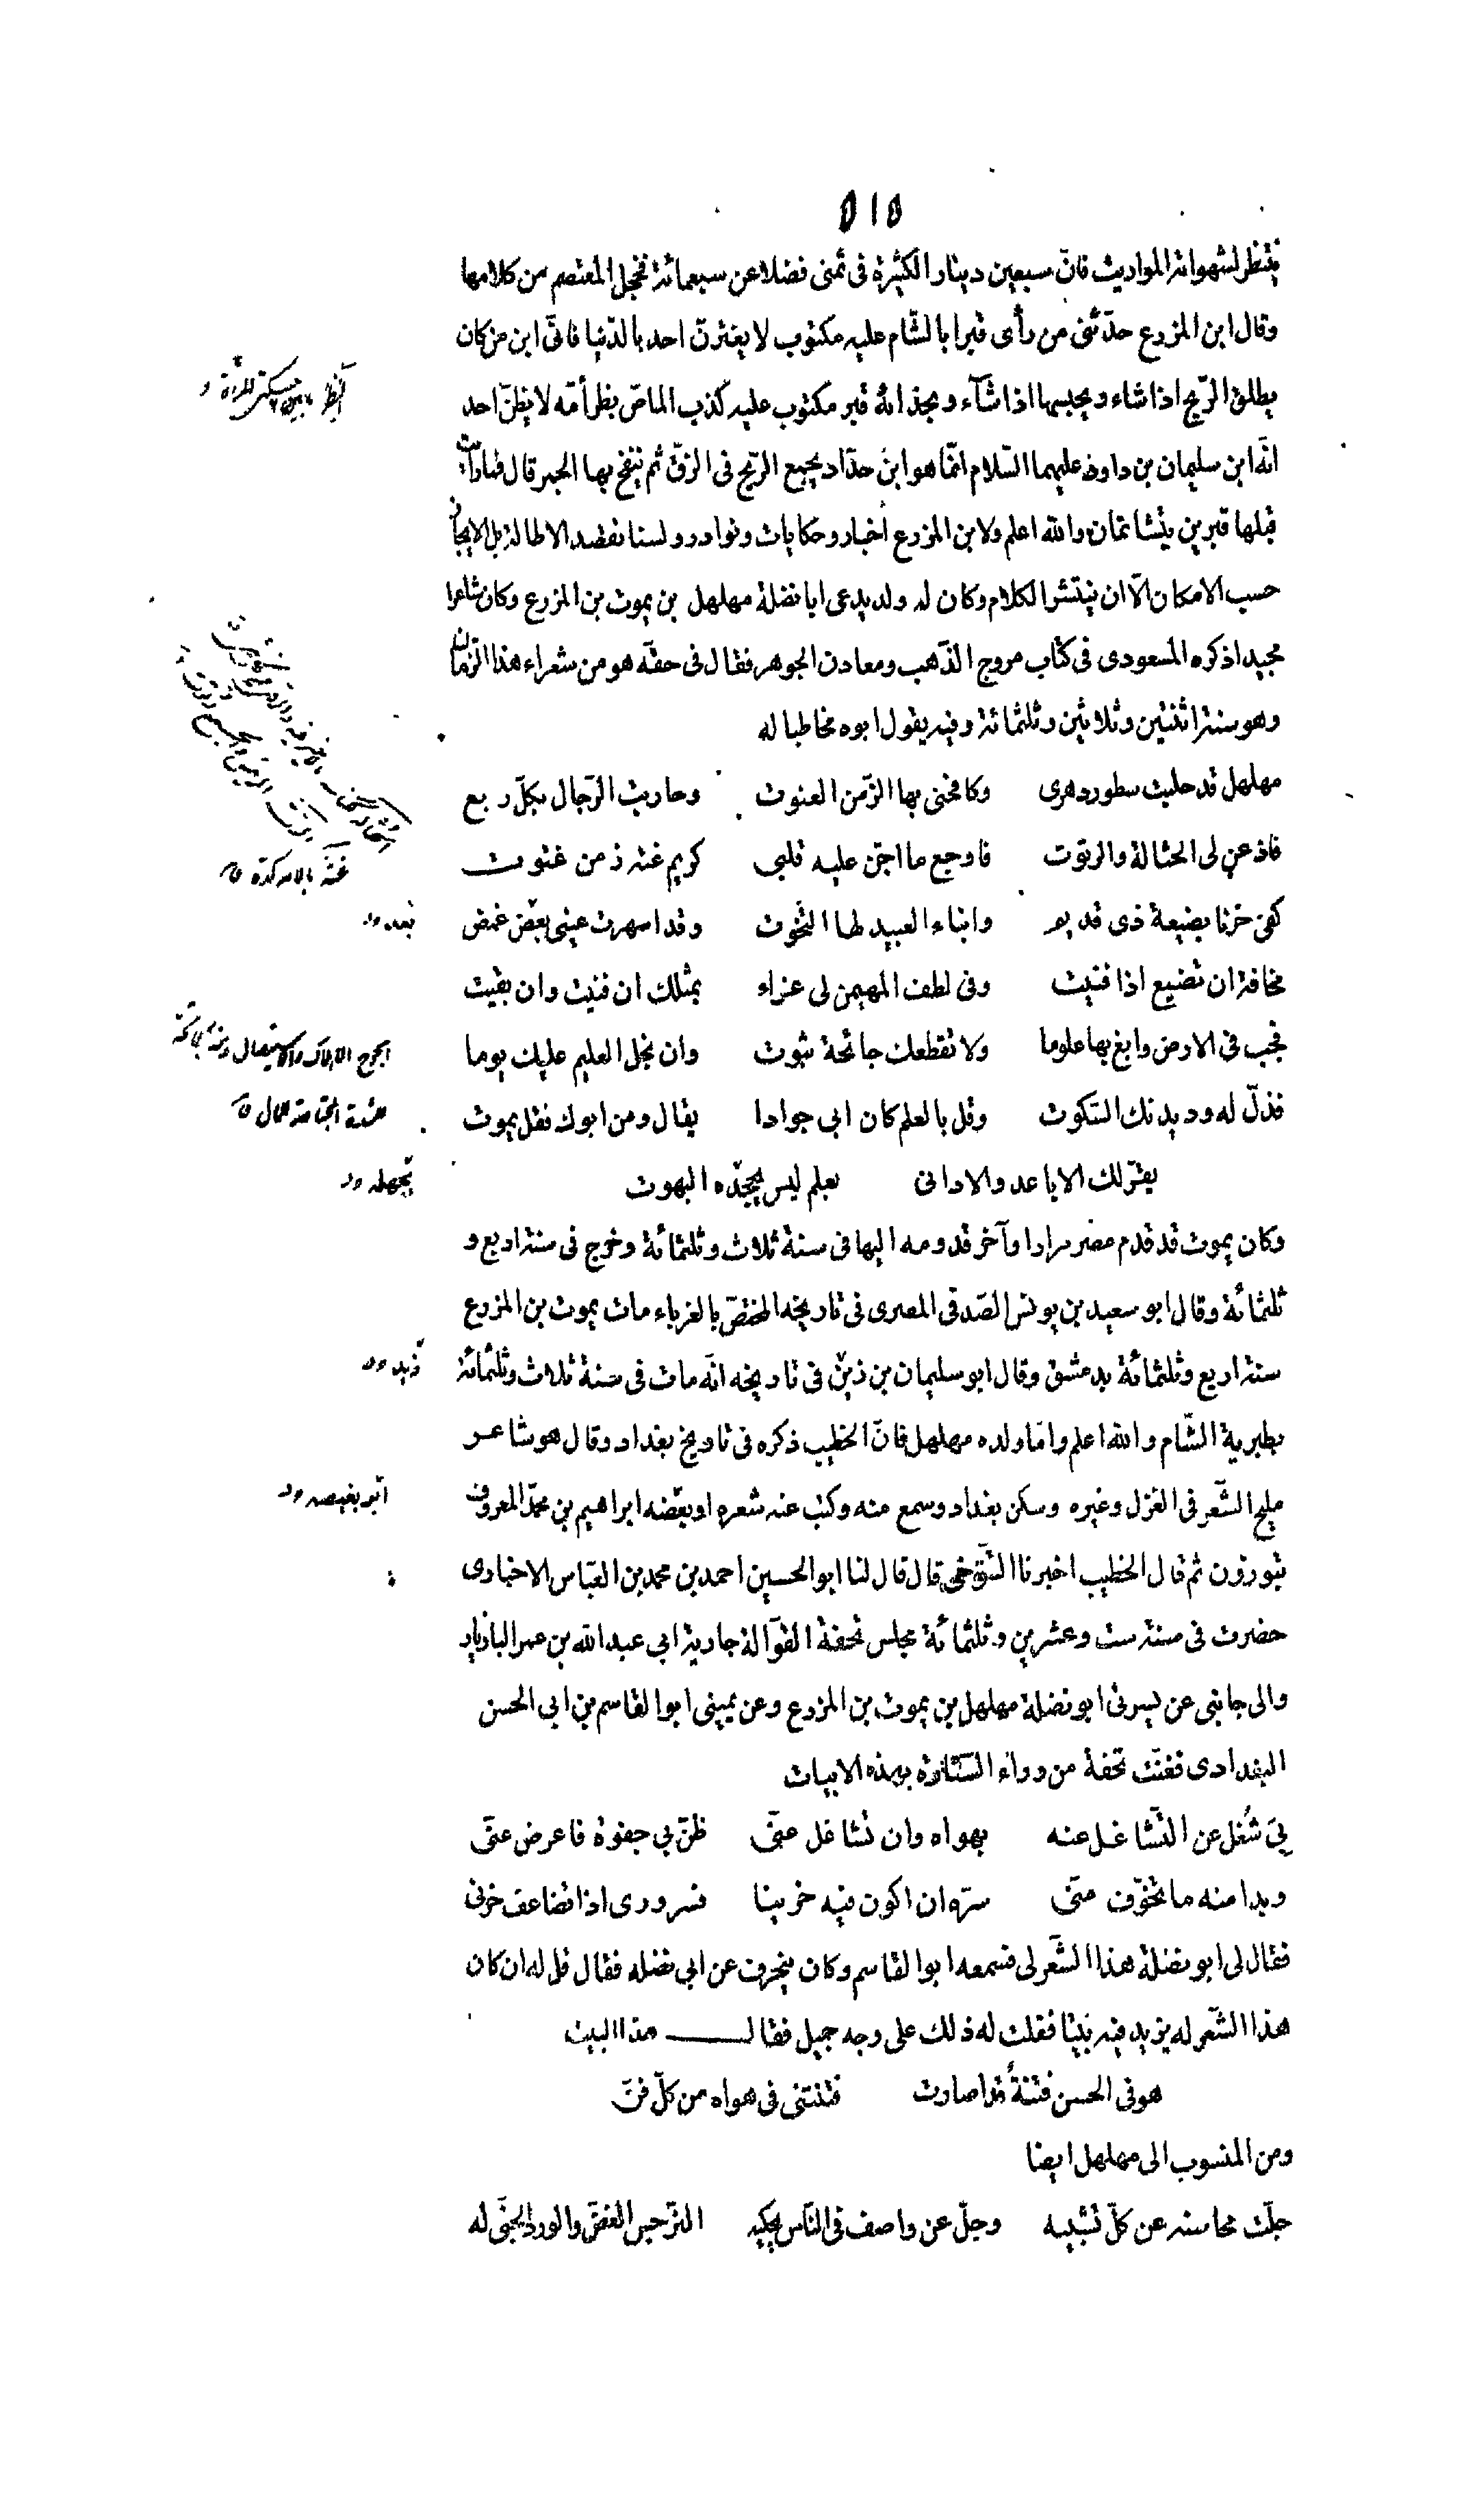 ٥١٥
ينتظر لشهواته المواريث فانّ سبعين دينارا لكثيرة فى ثمنى فضلا عن سبعمائة فخجل المعتصم من كلامها
وقال ابن المزرع حدّثنى من رأى قبرا بالشّام عليه مكتوب لا يغترنّ احد بالدّنيا فانّى ابن من كان
يطلق الرّيح اذا شاء ويحبسها اذا شآء وبحذائه قبر مكتوب عليه كذب الماصّ بظر أمّه لا يظنّ احد
انّه ابن سليمان بن داود عليهما السّلام انّما هو ابن حدّاد يجمع الرّيح فى الزقّ ثم ينفخ بها الجمر قال فما رأيت
قبلها قبرين يتشاتمان والله اعلم ولابن المزرع أخبار وحكايات ونوادر ولسنا نقصد الاطالة بل الايجاز
حسب الامكان الّا ان ينتشر الكلام وكان له ولد يدعى ابا نضلة مهلهل بن يموت بن المزرع وكان شاعرا
مجيدا ذكره المسعودى فى كتاب مروج الذّهب ومعادن الجوهر فقال فى حقّه هو من شعراء هذا الزمان
وهو سنة اثنتين وثلاثين وثلثمائة وفيه يقول ابوه مخاطبا له
مهلهل قد حلبت سطور دهرى وكافحنى بها الزّمن العنوت وحاربت الرّجال بكلّ ربع
فاذعن لى الحثالة والرتوت فاوجع ما اجنّ عليه قلبى كريم غته زمن غتوت
كفى حزنا بضيعة ذى قديم وابناء العبيد لها التّخوت وقد اسهرت عينى بعّض غمض
مخافة ان تضيع اذا فنيت وفى لطف المهيمن لى عزاء بمثلك ان فنيت وان بقيت
فجب فى الارض وابغ بها علوما ولا تقطعك جائحة ثبوت وان بخل العليم عليك يوما
فذلّ له وديدنك السّكوت وقل بالعلم كان ابى جوادا يقال ومن ابوك فقل يموت
يقرّ لك الاباعد والادانى بعلم ليس يجحّده البهوت
تجهله
وكان يموت قد قدم مصر مرارا وآخر قدومه اليها فى سنة ثلاث وثلثمائة وخرج فى سنة اربع و
ثلثمائة وقال ابو سعيد بن يونس الصّدفى المصرى فى تاريخه المختصّ بالغرباء مات يموت بن المزرع
سنة اربع وثلثمائة بدمشق وقال ابو سليمان بن زبرّ فى تاريخه انّه مات فى سنة ثلاث وثلثمائة
بطبرية الشّام والله اعلم وامّا ولده مهلهل فانّ الخطيب ذكره فى تاريخ بغداد وقال هو شاعر
مليح الشّعر فى الغزل وغيره وسكن بغداد وسمع منه وكتب عنه شعره او بعّضه ابراهيم بن محمّد المعروف
بتوزون ثم قال الخطيب اخبرنا التّنوخى قال قال لنا ابو الحسين احمد بن محمد بن العبّاس الاخبارى
حضرت فى سنة ست وعشرين وثلثمائة مجلس تحفة القوّالة جارية ابى عبد الله بن عمر البازيار
والى جانبى عن يسرتى ابو نضلة مهلهل بن يموت بن المزرع وعن يمينى ابو القاسم بن ابى الحسن
البغدادى فغنّت تحفة من وراء السّتارة بهذه الابيات
بى شُغل عن التّشاغل عنه بهواه وان تشاغل عنّى ظنّ بى جفوة فاعرض عنّى
وبدا منه ما تخوّف منّى سرّه ان اكون فيه حزينا فسرورى اذا تضاعف حزنى
فقال لى ابو نضلة هذا الشّعر لى فسمعه ابو القاسم وكان ينحرف عن ابى نضله فقال قل له ان كان
هذا الشّعر له يزيد فيه بيتا فقلت له ذلك على وجه جميل فقال هذا البيت
هو فى الحسن فتنةٌ قد اصارت فتنتى فى هواه من كلّ فنّ
ومن المنسوب الى مهلهل ايضا
جلّت محاسنه عن كلّ تشبيه وجلّ عن واصف فى النّاس يحكيه النّرجس الغضّ والورد الجنّى له